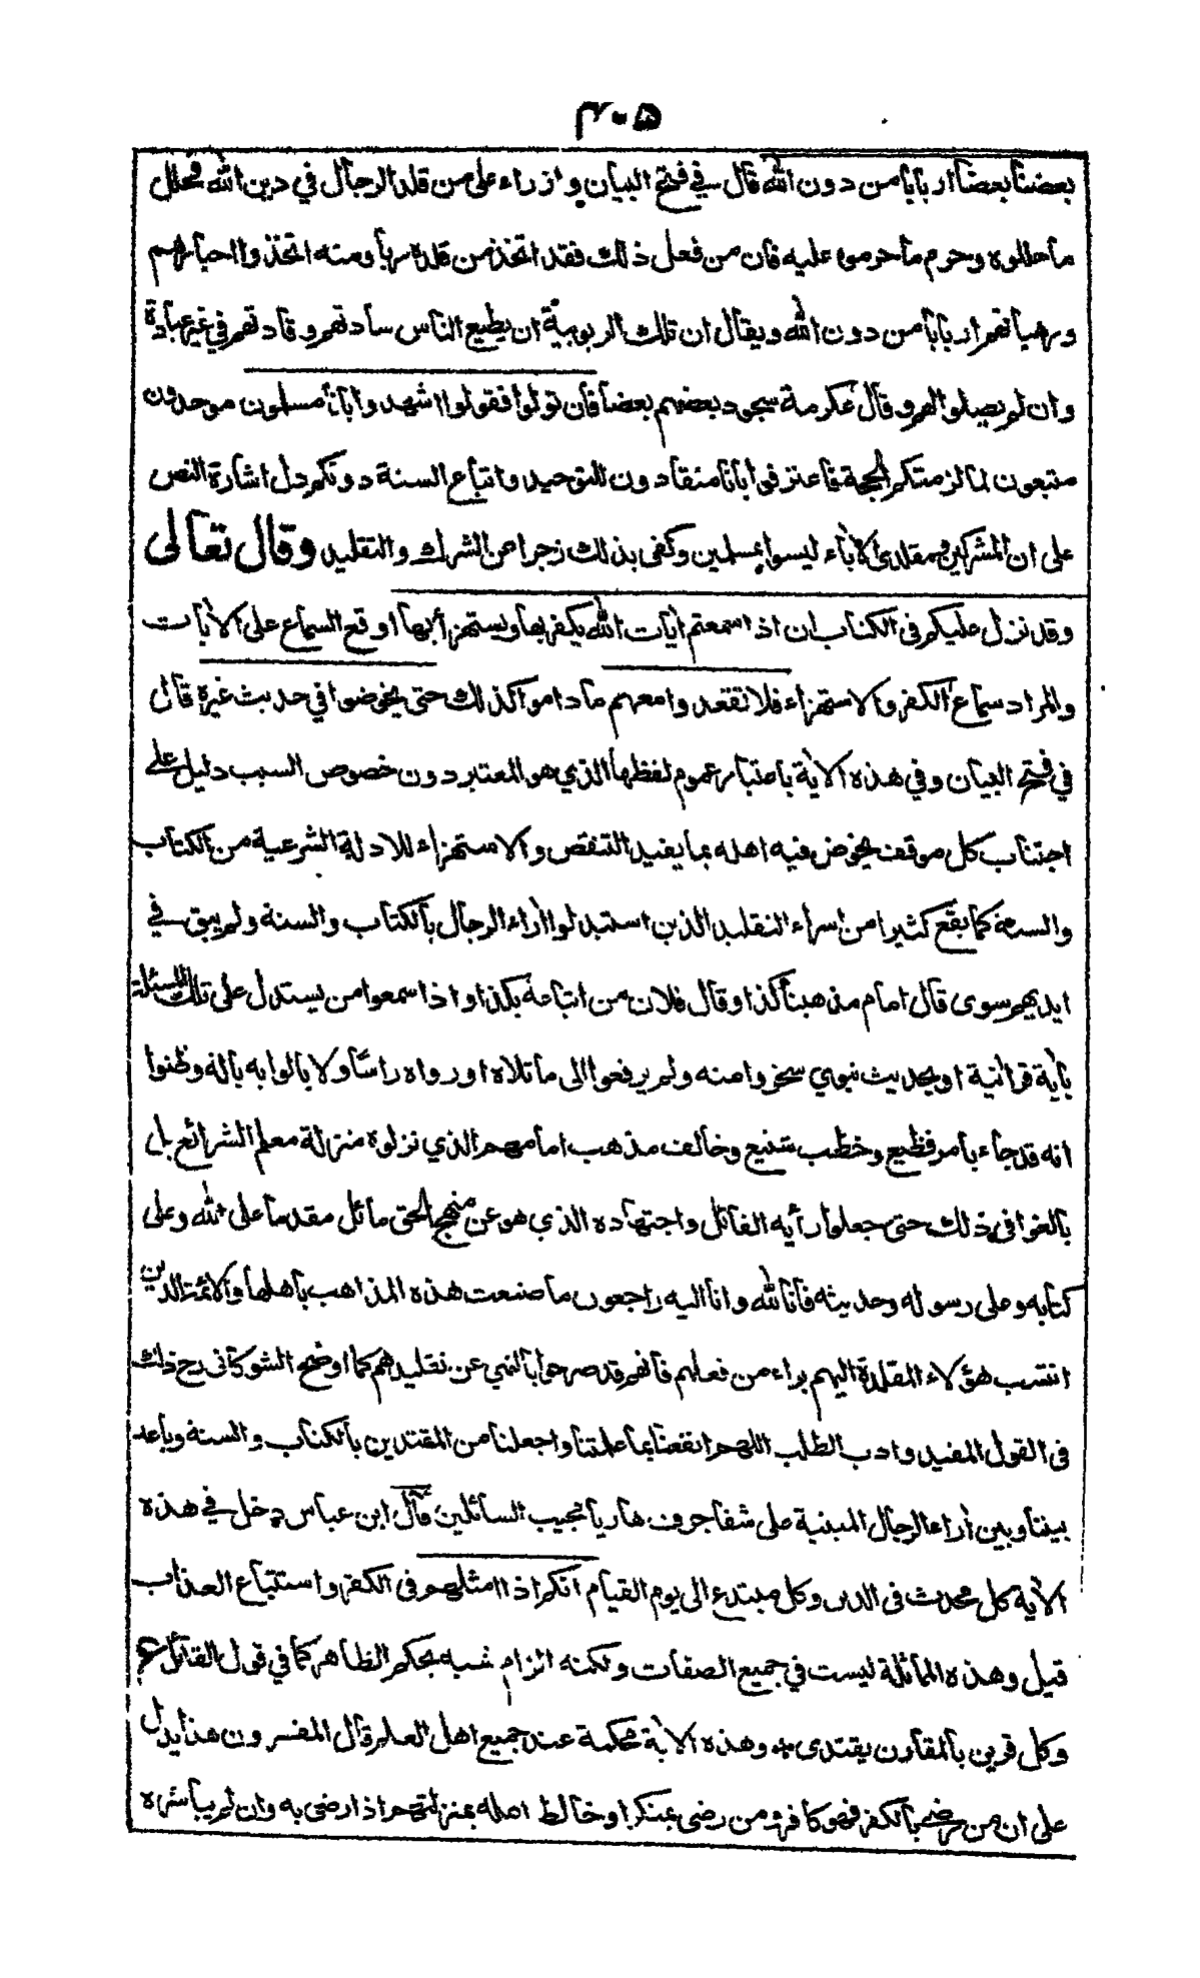 ٣٠٥
بعضنا بعضا اربابا من دون الله قال في فتح البيان وازراء على من قلد الرجال في دين الله فحلل
ما حللوه وحرم ما حرموه عليه فان من فعل ذلك فقد اتخذ من قلده ربا ومنه اتخذوا احبارهم
ورهبانهم اربابا من دون الله ويقال ان تلك الربوبية ان يطيع الناس سادتهم وقادتهم في غير عبادة
وان لم يصلوا لهم وقال عكرمة سجود بعضهم بعضا فان تولوا فقولوا اشهدوا بانا مسلمون موحدون
متبعون لما لزمتكم الحجة فاعترفوا بانا منقادون للتوحيد واتباع السنة دونكم دل اشارة النص
على ان المشركين ومقلدى الاباء ليسوا بمسلمين وكفى بذلك زجرا من الشرك والتقليد وقال تعالى
وقد نزل عليكم فى الكتاب ان اذا سمعتم ايات الله يكفر بها ويستهزأ بها اوقع السماع على الايات
والمراد سماع الكفر والاستهزاء فلا تقعدوا معهم ما داموا كذلك حتى يخوضوا في حديث غيره قال
في فتح البيان وفي هذه الاية باعتبار عموم لفظها الذي هو المعتبر دون خصوص السبب دليل على
اجتناب كل موقف يخوض فيه اهله بما يفيد التنقص والاستهزاء للادلة الشرعية من الكتاب
والسنة كما يقع كثيرا من اسراء التقليد الذين استبدلوا اراء الرجال بالكتاب والسنة ولم يبق في
ايديهم سوى قال امام مذهبنا كذا وقال فلان من اتباعه بكذا واذا سمعوا من يستدل على تلك المسئلة
باية قرانية او بحديث نبوي سخروا منه ولم يرفعوا الى ما تلاه او رواه راسا ولا بالوا به بالة وظنوا
انه قد جاء بامر فظيع وخطب شنيع وخالف مذهب امامهم الذي نزلوه منزلة معلم الشرائع بل
بالغوا في ذلك حتى جعلوا رأيه الفائل واجتهاده الذي هو عن منهج الحق مائل مقدما على الله وعلى
كتابه وعلى رسوله وحديثه فانا لله وانا اليه راجعون ما صنعت هذه المذاهب باهلها والائمة الذين
انتسب هؤلاء المقلدة اليهم براء من فعلهم فانهم قد صرحوا بالنهي عن تقليدهم كما اوضح الشوكانى رح ذلك
فى القول المفيد وادب الطلب اللهم انفعنا بما علمتنا واجعلنا من المقتدين بالكتاب والسنة وباعد
بيننا وبين اراء الرجال المبنية على شفا جرف هار يا مجيب السائلين قال ابن عباس دخل في هذه
الاية كل محدث فى الدين وكل مبتدع الى يوم القيام انكم اذا مثلهم فى الكفر واستتباع العذاب
قيل وهذه المماثلة ليست في جميع الصفات ولكنه الزام شبه بحكم الظاهر كما في قول القائل ع
وكل قرين بالمقارن يقتدى وهذه الاية محكمة عند جميع اهل العلم قال المفسرون هذا يدل
على ان من رضي بالكفر فهو كافر ومن رضى بمنكر او خالط اهله بمنزلتهم اذا رضى به وان لم يباشره